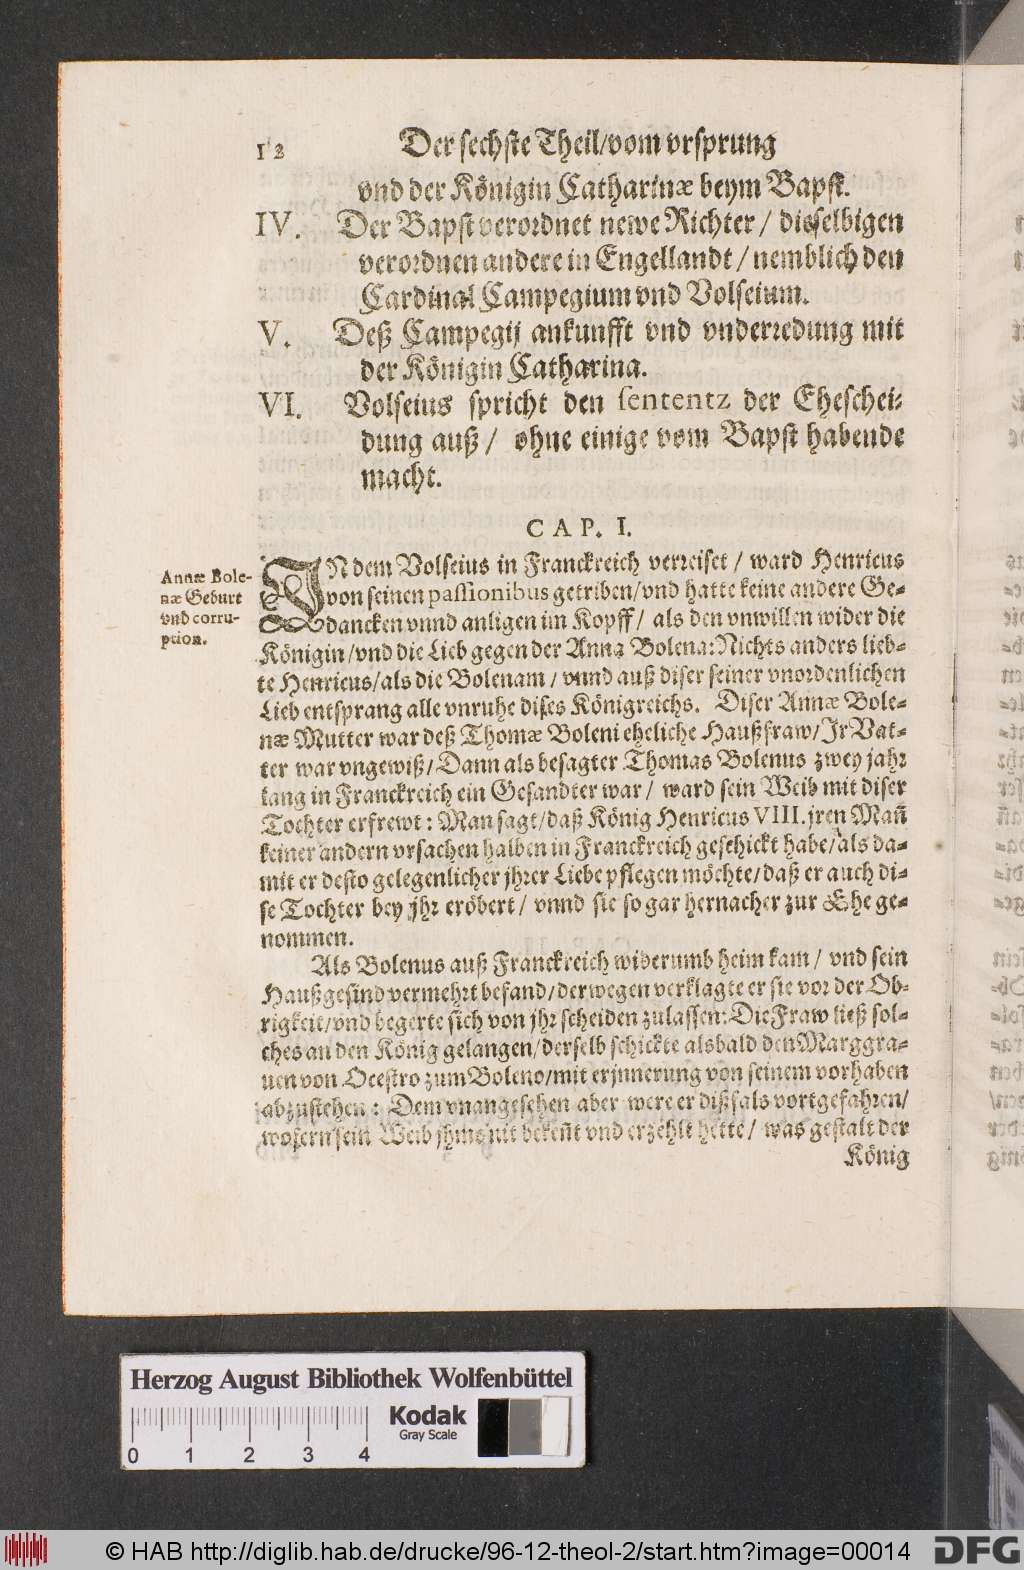 12 Der sechste Theil/vom vrsprung
vnd der Königin Catharinæ beym Bapst.
IV. Der Bapst verordnet newe Richter / dieselbigen
verordnen andere in Engellandt / nemblich den
Cardinal Campegium vnd Volseium.
V. Deß Campegij ankunfft vnd vnderredung mit
der Königin Catharina.
VI. Volseius spricht den sententz der Eheschei-
dung auß / ohne einige vom Bapst habende
macht.
CAP. I.
Annæ Bole-
næ Geburt
vnd corru-
ption.
IN dem Volseius in Franckreich verreiset / ward Henricus
von seinen passionibus getriben/vnd hatte keine andere Ge-
dancken vnnd anligen im Kopff/ als den vnwillen wider die
Königin/vnd die Lieb gegen der Anna Bolena: Nichts anders lieb-
te Henricus/als die Bolenam / vnnd auß diser seiner vnordenlichen
Lieb entsprang alle vnruhe dises Königreichs. Diser Annæ Bole-
næ Mutter war deß Thomæ Boleni eheliche Haußfraw/Jr Vat-
ter war vngewiß/Dann als besagter Thomas Bolenus zwey jahr
lang in Franckreich ein Gesandter war / ward sein Weib mit diser
Tochter erfrewt: Man sagt/daß König Henricus VIII. jren Mañ
keiner andern vrsachen halben in Franckreich geschickt habe/als da-
mit er desto gelegenlicher jhrer Liebe pflegen möchte/daß er auch di-
se Tochter bey jhr eröbert / vnnd sie so gar hernacher zur Ehe ge-
nommen.
Als Bolenus auß Franckreich widerumb heim kam / vnd sein
Haußgesind vermehrt befand/derwegen verklagte er sie vor der Ob-
rigkeit/vnd begerte sich von jhr scheiden zulassen: Die Fraw ließ sol-
ches an den König gelangen/derselb schickte alsbald den Marggra-
uen von Ocestro zum Boleno/mit erjnnerung von seinem vorhaben
abzustehen: Dem vnangesehen aber were er dißfals vortgefahren/
wofern sein Weib jhme nit bekeñt vnd erzehlt hette / was gestalt der
König
Herzog August Bibliothek Wolfenbüttel
Kodak
Gray Scale
0 1 2 3 4
© HAB http://diglib.hab.de/drucke/96-12-theol-2/start.htm?image=00014
DFG